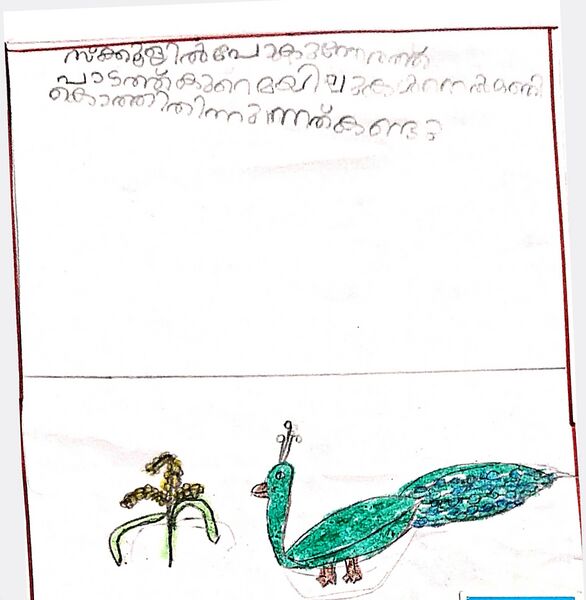 സ്ക്കൂളിൽ പോകുന്നേരത്ത്
പാടത്ത് കുറെ മയിലുകൾ നെന്മണി
കൊത്തിതിന്നുന്നത് കണ്ടു